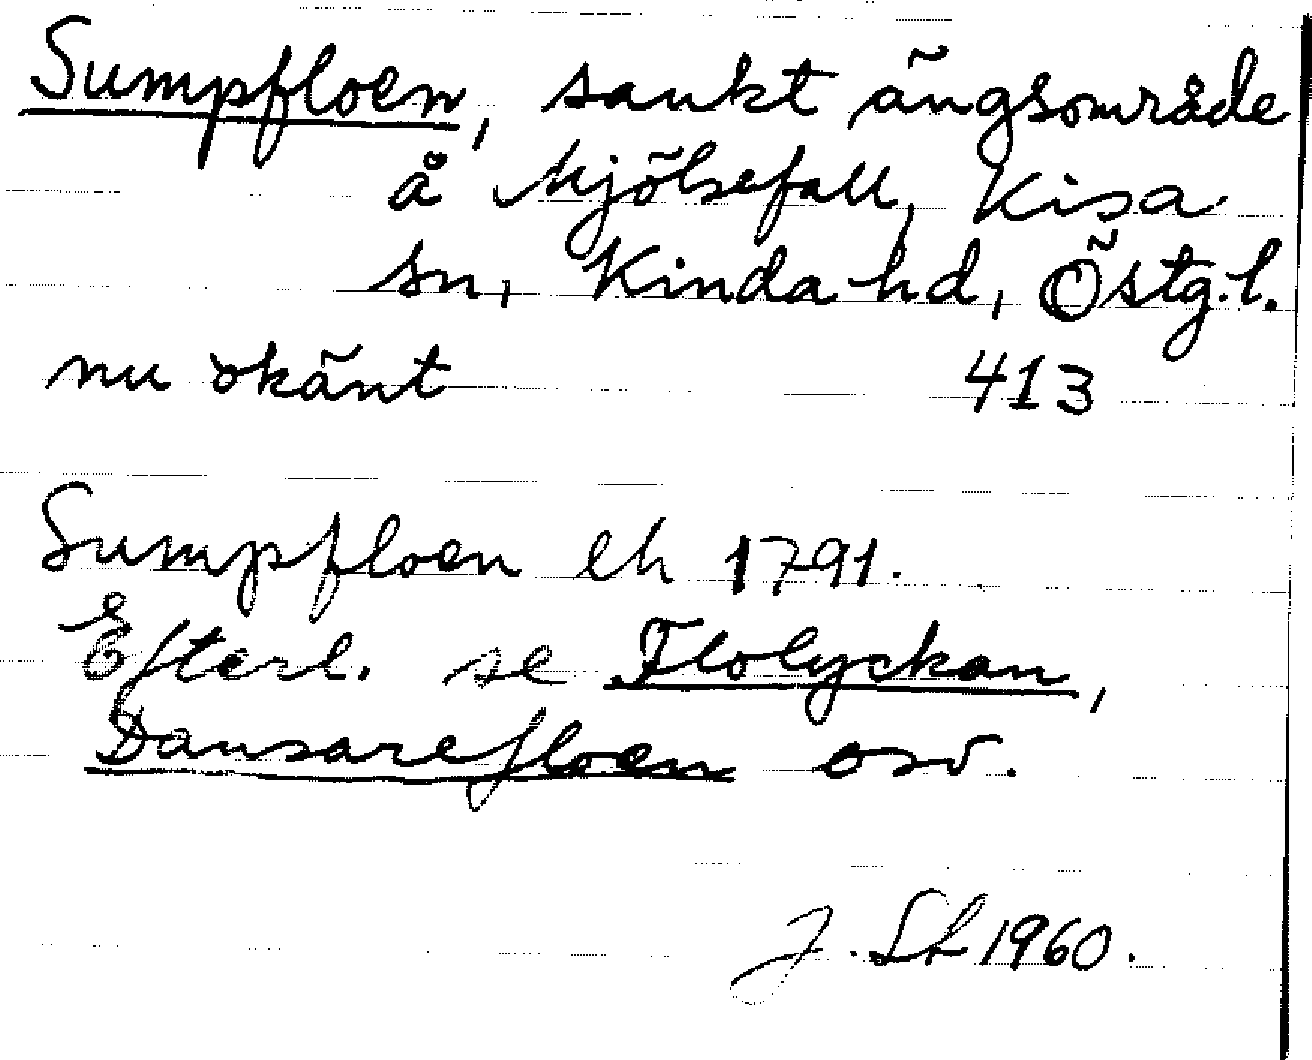 Sumpfloen, sankt ängsområde
å Mjölsefall, Kisa
sn, Kinda hd, Östg.l.
nu okänt 413
Sumpfloen eh 1791.
Efterl. se Flolyckan,
Dansarefloen osv.
J. 1960.